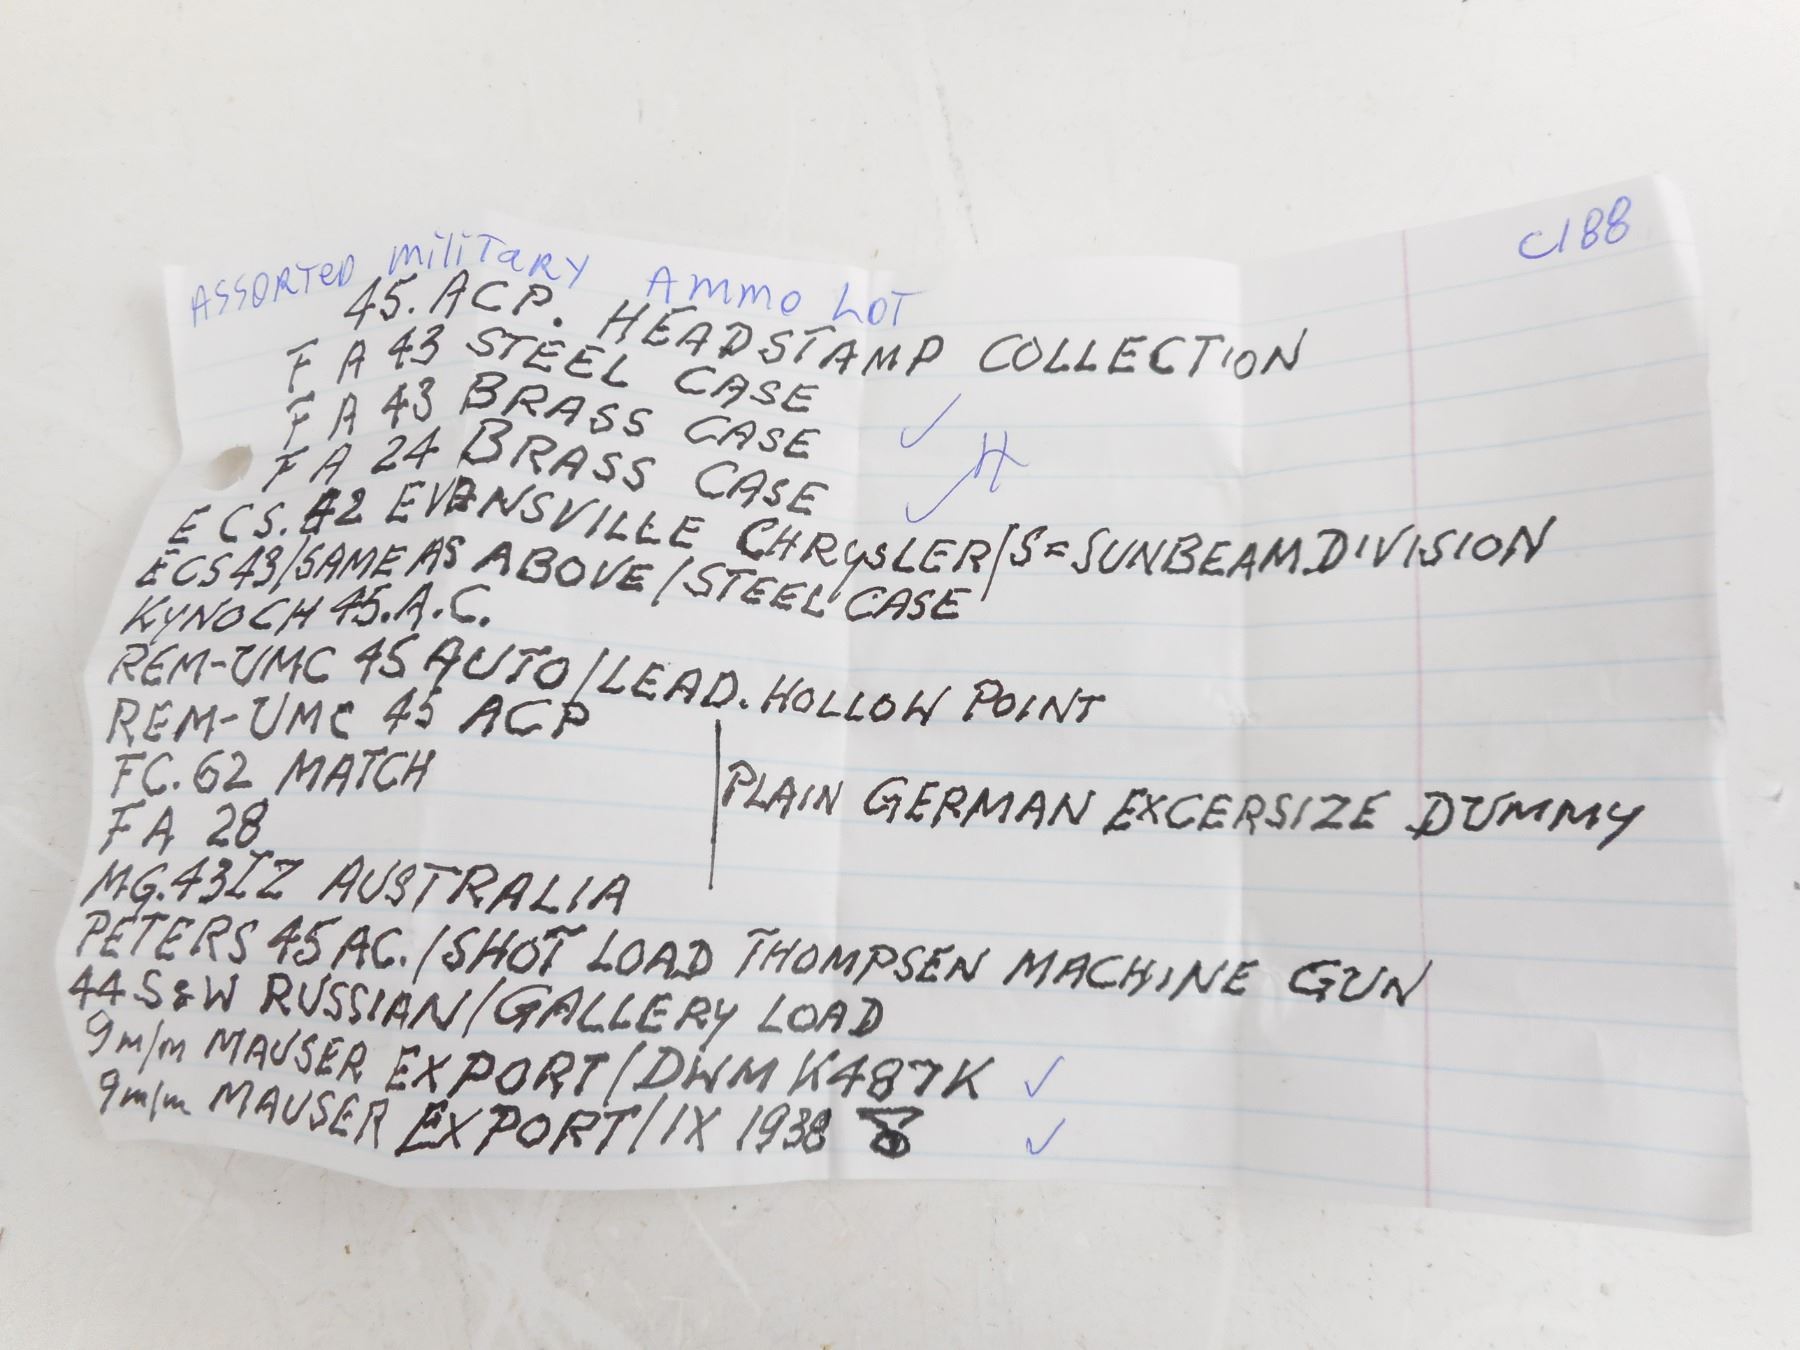 C188
ASSORTED military Ammo LOT
45. ACP. HEADSTAMP COLLECTION
F A 43 STEEL CASE
F A 43 BRASS CASE ✓
F A 24 BRASS CASE ✓ H
E CS. 42 EVANSVILLE CHRYSLER/S=SUNBEAM.DIVISION
ECS43/SAME AS ABOVE/STEEL CASE
KYNOCH 45.A.C.
REM-UMC 45 AUTO/LEAD. HOLLOW POINT
REM-UMC 45 ACP
FC. 62 MATCH
PLAIN GERMAN EXCERSIZE DUMMY
FA 28
MG.43IZ AUSTRALIA
PETERS 45 AC./SHOT LOAD THOMPSEN MACHINE GUN
44 S&W RUSSIAN/GALLERY LOAD
9m/m MAUSER EXPORT/DWM K487K ✓
9m/m MAUSER EXPORT/IX 1938 ✓